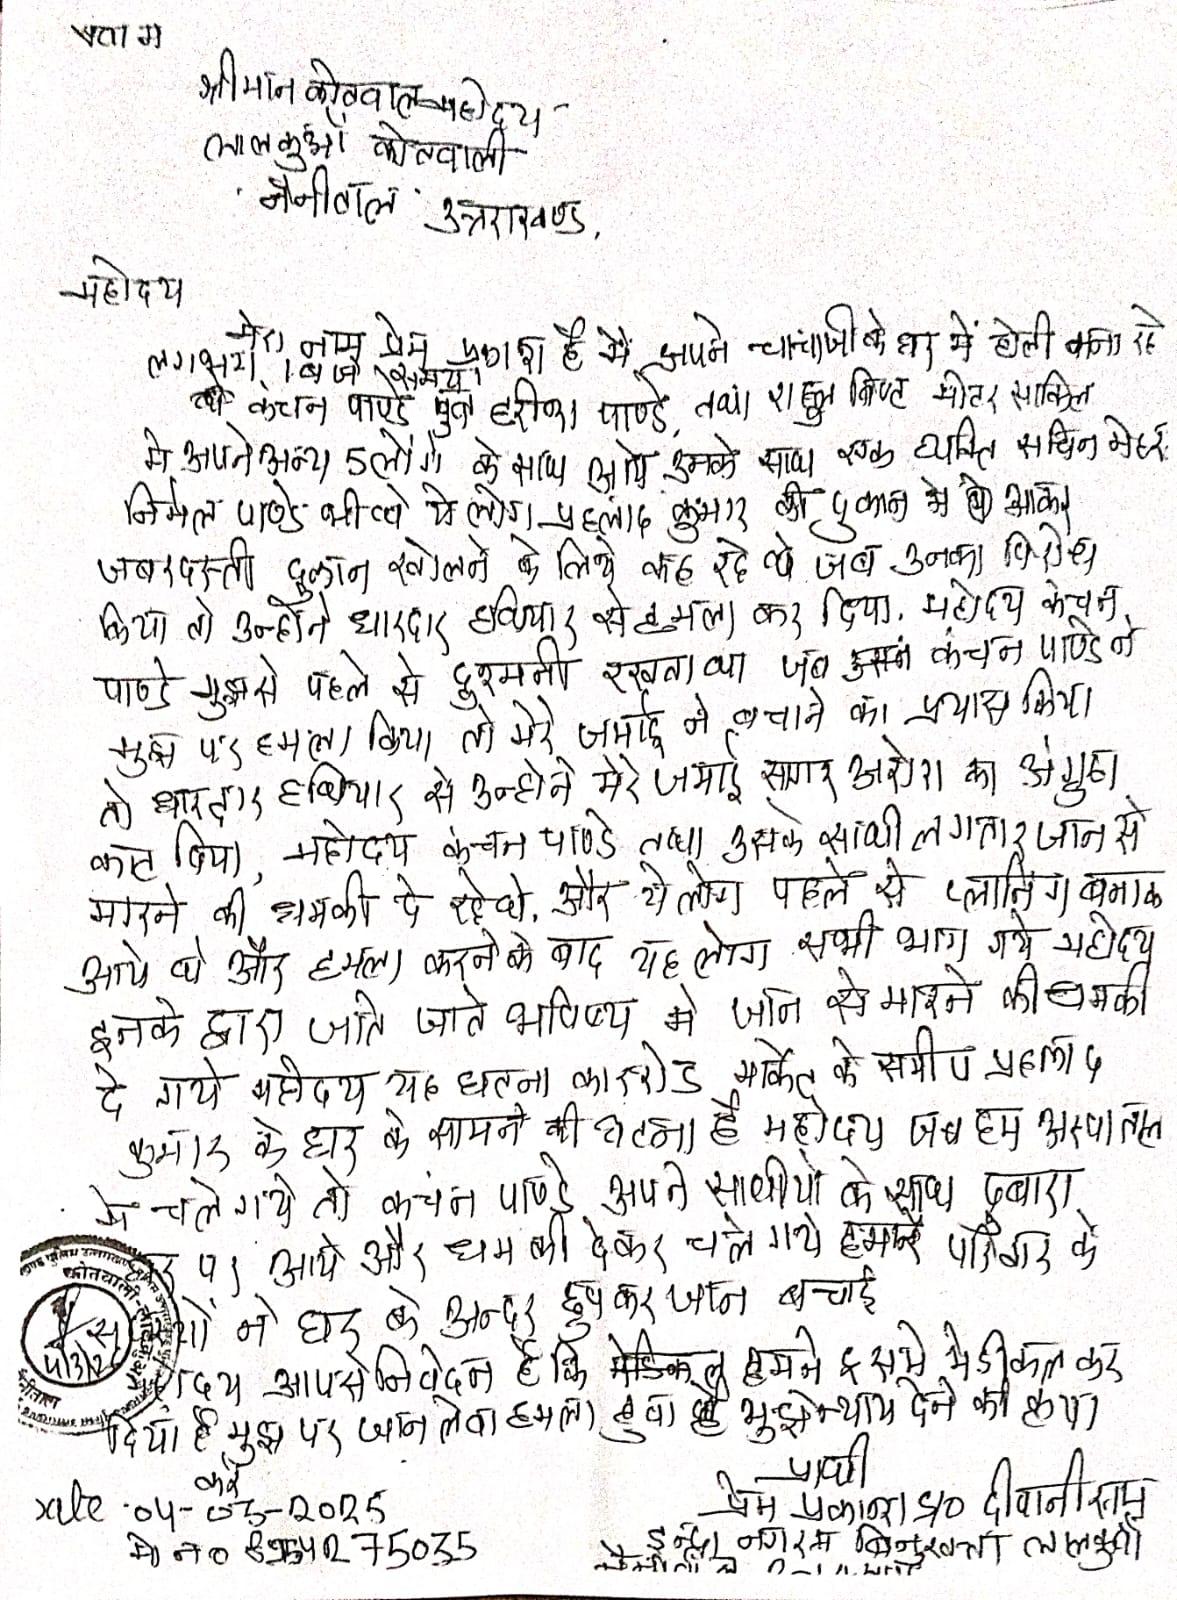 सेवा में
श्रीमान कोतवाल महोदय
लालकुआँ कोतवाली
नैनीताल उत्तराखण्ड,
महोदय
मेरा नाम प्रेम प्रकाश है मैं अपने चाचाजी के घर में होली मना रहे
लगभग 1 बजे समय
थे कंचन पाण्डे पुत्र हरीश पाण्डे, तथा राहुल बिष्ट मोटर साकिल
मे अपने अन्य 5 लोगो के साथ आये उसके साथ एक व्यक्ति सचिन मेहर
निर्मल पाण्डे भी थे ये लोग प्रहलाद कुमार की दुकान मे आकर
जबरदस्ती दुकान खोलने के लिये कह रहे थे जब उनका विरोध
किया तो उन्होंने धारदार हथियार से हमला कर दिया. महोदय कंचन
पाण्डे मुझसे पहले से दुश्मनी रखता था जब कंचन पाण्डे ने
मुझ पर हमला किया तो मेरे जमाई ने बचाने का प्रयास किया
तो धारदार हथियार से उन्होने मेरे जमाई सागर अरोरा का अंगुठा
काट दिया, महोदय कंचन पाण्डे तथा उसके साथी लगातार जान से
मारने की धमकी दे रहे थे. और ये लोग पहले से प्लानिंग बनाक
आये थे और हमला करने के बाद यह लोग सभी भाग गये महोदय
इनके द्वारा जाते जाते भविष्य मे जान से मारने की धमकी
दे गये महोदय यह घटना कार रोड मार्केट के समीप प्रहलाद
कुमार के घर के सामने की घटना है महोदय जब हम अस्पताल
मे चले गये तो कचंन पाण्डे अपने साथीयों के साथ दुबारा
पर आये और धमकी देकर चले गये हमारे परिवार के
ने घर के अन्दर छुपकर जान बचाई
आपसे निवेदन है कि मेडिकल हमने इसमे मेडीकल कर
दिया है मुझ पर जान लेवा हमला हुवा है मुझे न्याय देने की कृपा
करें
प्रार्थी
Date 04-03-2025
प्रेम प्रकाश S/O दीवानी राम
मो न० 8954275035
इन्द्रा नगर बिन्दुखत्ता लालकुआँ
कोतवाली